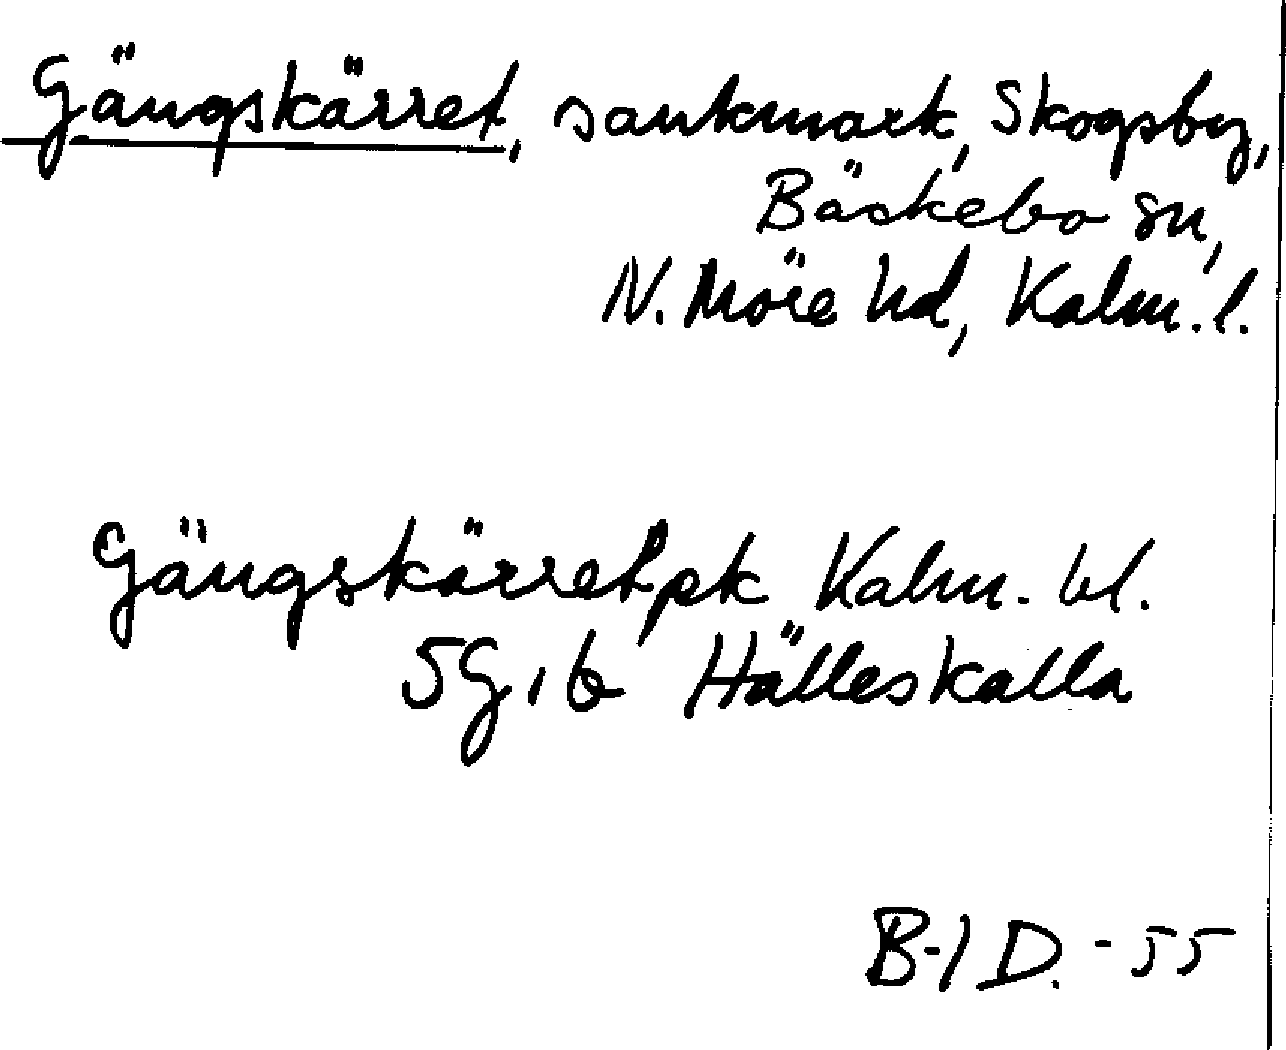 Gängskärret, sankmark, Skogsby,
Bäckebo sn,
N. Möre hd, Kalm. l.
Gängskärret, ek Kalm. bl.
5G, b Hälleskalla
B-I D. -55